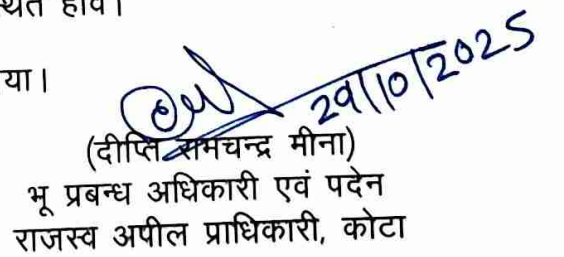 होवे।
या।
29/10/2025
(दीप्ति रामचन्द्र मीना)
भू प्रबन्ध अधिकारी एवं पदेन
राजस्व अपील प्राधिकारी, कोटा